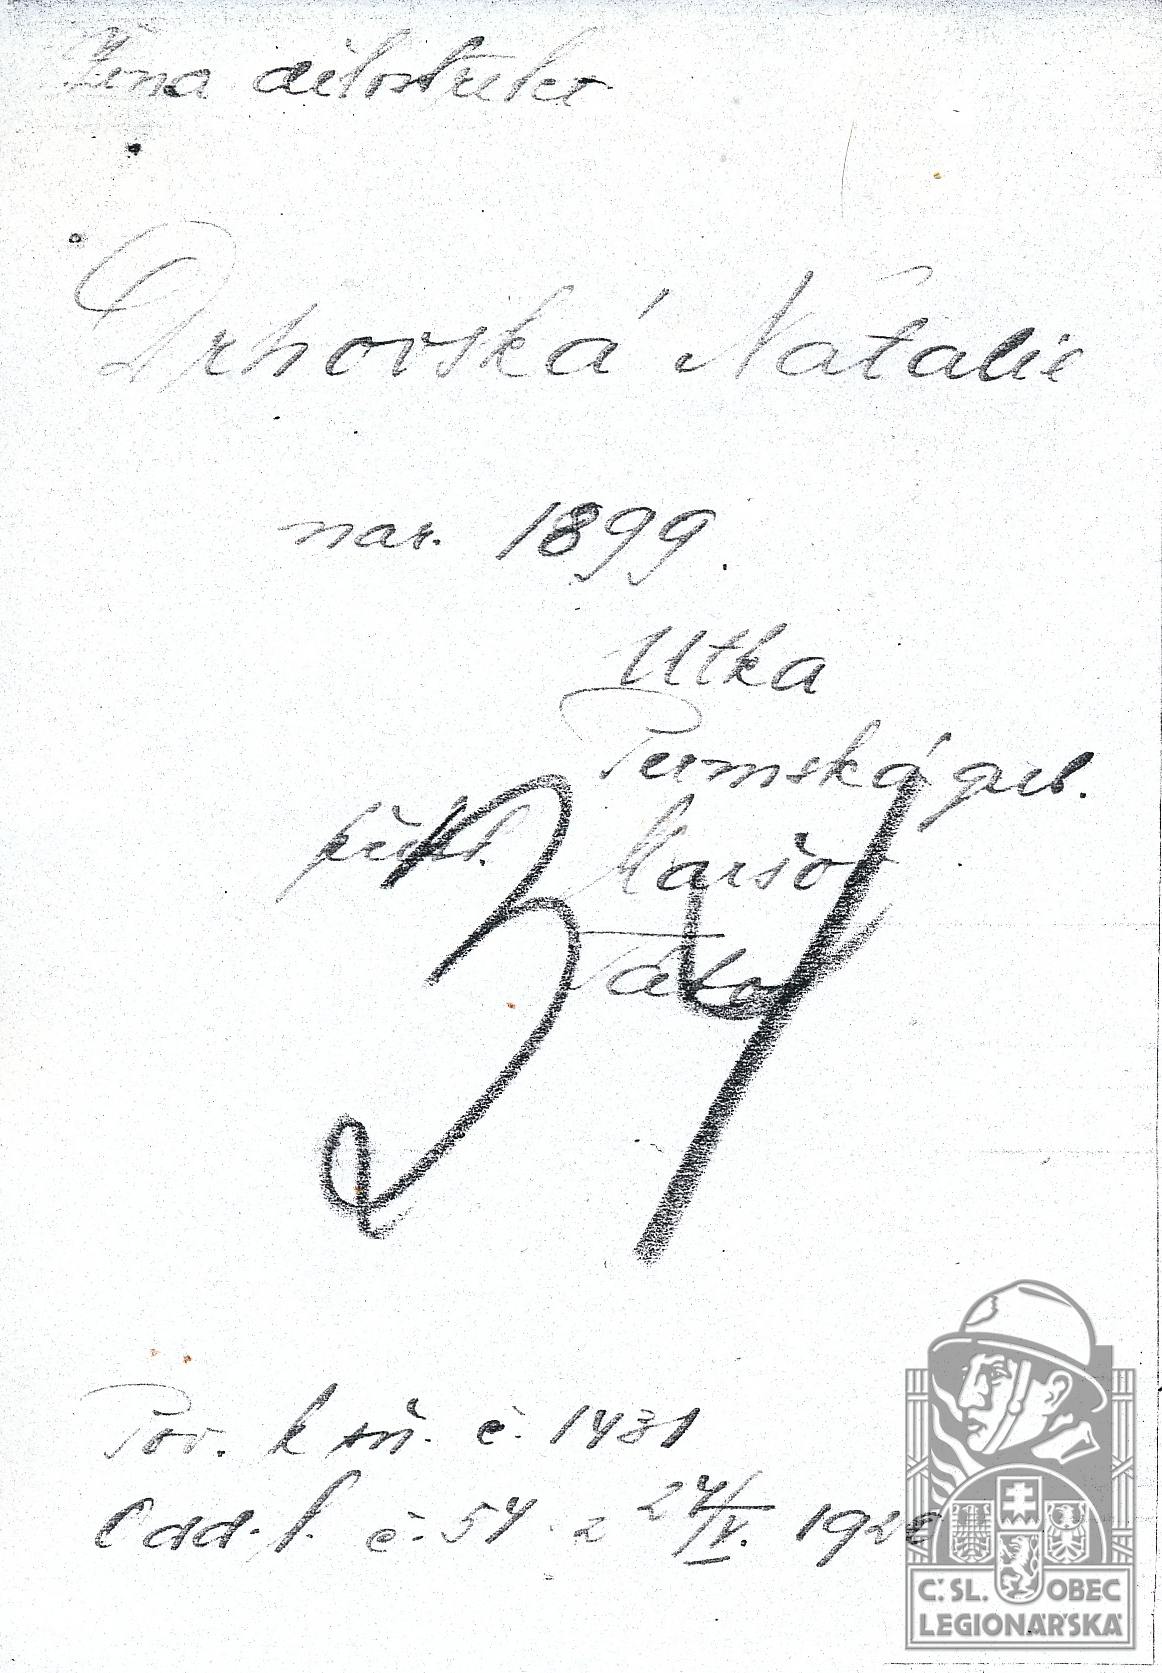 Žena dělostřelce
Drhovská Natalie
nar. 1899.
Utka
Permská gub.
přísl. Maršov
Tábor
34
Pov. k sň. č. 1431
Odd. f. č. 54 z 24/IV. 1920
Č. SL. OBEC
LEGIONÁŘSKÁ